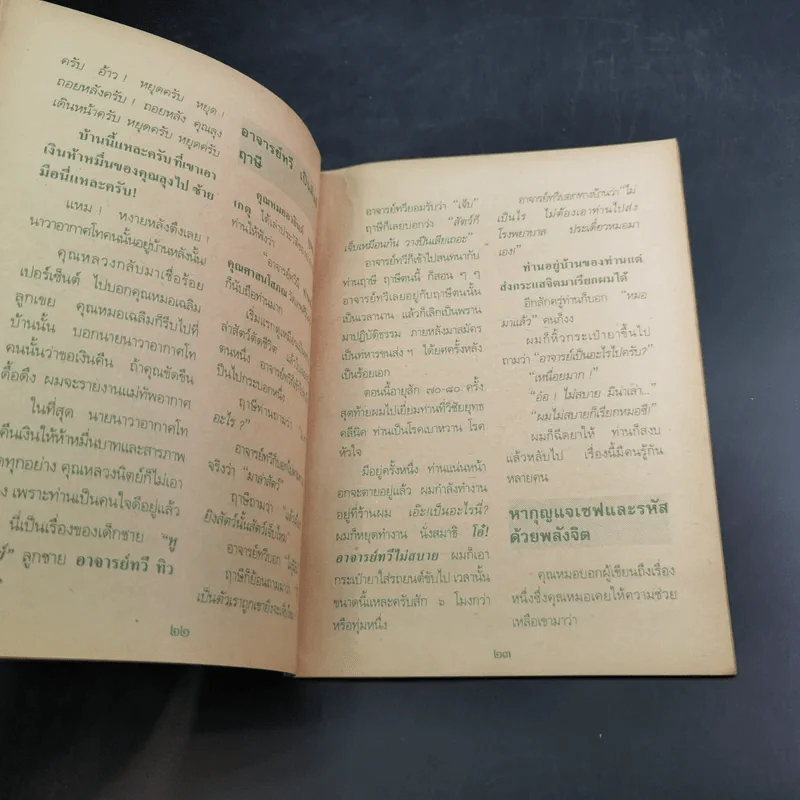 ครับ อ้าว ! หยุดครับ หยุด !
ถอยหลังครับ ! ถอยหลัง คุณลุง
เดินหน้าครับ หยุดครับ หยุดครับ
บ้านนี้แหละครับ ที่เขาเอา
เงินห้าหมื่นของคุณลุงไป ซ้าย
มือนี่แหละครับ!
แหม ! หงายหลังตึงเลย !
นาวาอากาศโทคนนั้นอยู่บ้านหลังนั้น
คุณหลวงกลับมาเชื่อร้อย
เปอร์เซ็นต์ ไปบอกคุณหมอเฉลิม
ลูกเขย คุณหมอเฉลิมก็รีบไปที่
บ้านนั้น บอกนายนาวาอากาศโท
คนนั้นว่าขอเงินคืน ถ้าคุณขัดขืน
ดื้อดึง ผมจะรายงานแม่ทัพอากาศ
ในที่สุด นายนาวาอากาศโท
คืนเงินให้ห้าหมื่นบาทและสารภาพ
ทุกอย่าง คุณหลวงนิตย์ก็ไม่เอา
เพราะท่านเป็นคนใจดีอยู่แล้ว
นี่เป็นเรื่องของเด็กชาย "พู
ลูกชาย อาจารย์ทวี ทิว
๒๒
อาจารย์ทวี
ฤาษี
ท่านให้ฟังว่า
"อาจารย์ทวี
ก็นับถือท่านมาก
ล่าสัตว์ตัดชีวิต
คนหนึ่ง
เป็นไปกระบอกหนึ่ง
ฤาษีท่านถามว่า
อะไร ?"
จริงว่า "มาล่าสัตว์"
ฤาษีถามว่า
ยิงสัตว์นั้นสัตว์เจ็บไหม
อาจารย์ทวีบอก
ฤาษีก็ย้อนถามมาว่า
เป็นตัวเราถูกเขายิงจะเจ็บไหม
อาจารย์ทวียอมรับว่า "เจ็บ"
ฤาษีก็เลยบอกว่า "สัตว์ก็
เจ็บเหมือนกัน วางปืนเสียเถอะ"
อาจารย์ทวีก็เข้าไปสนทนากับ
ท่านฤาษี ฤาษีตนนี้ ก็สอน ๆ ๆ
อาจารย์ทวีเลยอยู่กับฤาษีตนนั้น
เป็นเวลานาน แล้วก็เลิกเป็นพราน
มาปฏิบัติธรรม ภายหลังมาสมัคร
เป็นทหารขนส่ง ฯ ได้ยศครั้งหลัง
เป็นร้อยเอก
ตอนนี้อายุสัก ๗๐-๘๐ ครั้ง
สุดท้ายผมไปเยี่ยมท่านที่วิชัยยุทธ
คลีนิค ท่านเป็นโรคเบาหวาน โรค
หัวใจ
มีอยู่ครั้งหนึ่ง ท่านแน่นหน้า
อกจะตายอยู่แล้ว ผมกำลังทำงาน
อยู่ที่ร้านผม เอ๊ะ!เป็นอะไรนี่?
ผมก็หยุดทำงาน นั่งสมาธิ โอ๋!
อาจารย์ทวีไม่สบาย ผมก็เอา
กระเป๋ายาใส่รถยนต์ขับไป เวลานั้น
ขนาดนี้แหละครับสัก ๖ โมงกว่า
หรือทุ่มหนึ่ง
อาจารย์ทวีบอกทางบ้านว่า"ไม่
เป็นไร ไม่ต้องเอาท่านไปส่ง
โรงพยาบาล ประเดี๋ยวหมอมา
เอง!
ท่านอยู่บ้านของท่านแต่
ส่งกระแสจิตมาเรียกผมได้
อีกสักครู่ท่านก็บอก "หมอ
มาแล้ว" คนก็งง
ผมก็หิ้วกระเป๋ายาขึ้นไป
ถามว่า "อาจารย์เป็นอะไรไปครับ?"
"เหนื่อยมาก !"
"อ๋อ ! ไม่สบาย มิน่าเล่า..."
"ผมไม่สบายก็เรียกหมอซี!"
ผมก็ฉีดยาให้ ท่านก็สงบ
แล้วหลับไป เรื่องนี้มีคนรู้กัน
หลายคน
หากุญแจเซฟและรหัส
ด้วยพลังจิต
คุณหมอบอกผู้เขียนถึงเรื่อง
หนึ่งซึ่งคุณหมอเคยให้ความช่วย
เหลือเขามาว่า
๒๓